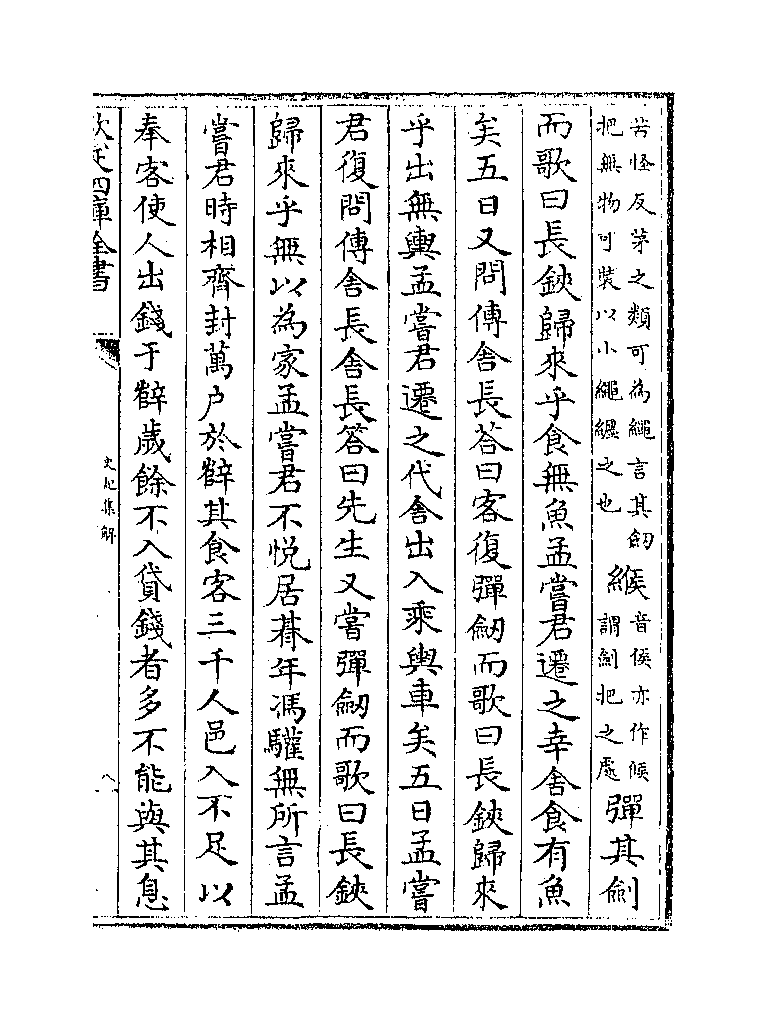 苦怪反茅之類可為繩言其劒把無物可裝以小繩纏之也緱音侯亦作候謂劒把之處彈其劍
而歌曰長鋏歸來乎食無魚孟嘗君遷之幸舍食有魚
矣五日又問傳舍長荅曰客復彈劒而歌曰長鋏歸來
乎出無輿孟嘗君遷之代舍出入乘輿車矣五日孟嘗
君復問傳舍長舍長答曰先生又嘗彈劒而歌曰長鋏
歸來乎無以為家孟嘗君不悦居朞年馮驩無所言孟
嘗君時相齊封萬户於薛其食客三千人邑入不足以
奉客使人出錢于薛歲餘不入貸錢者多不能與其息
欽定四庫全書
史記集解
八